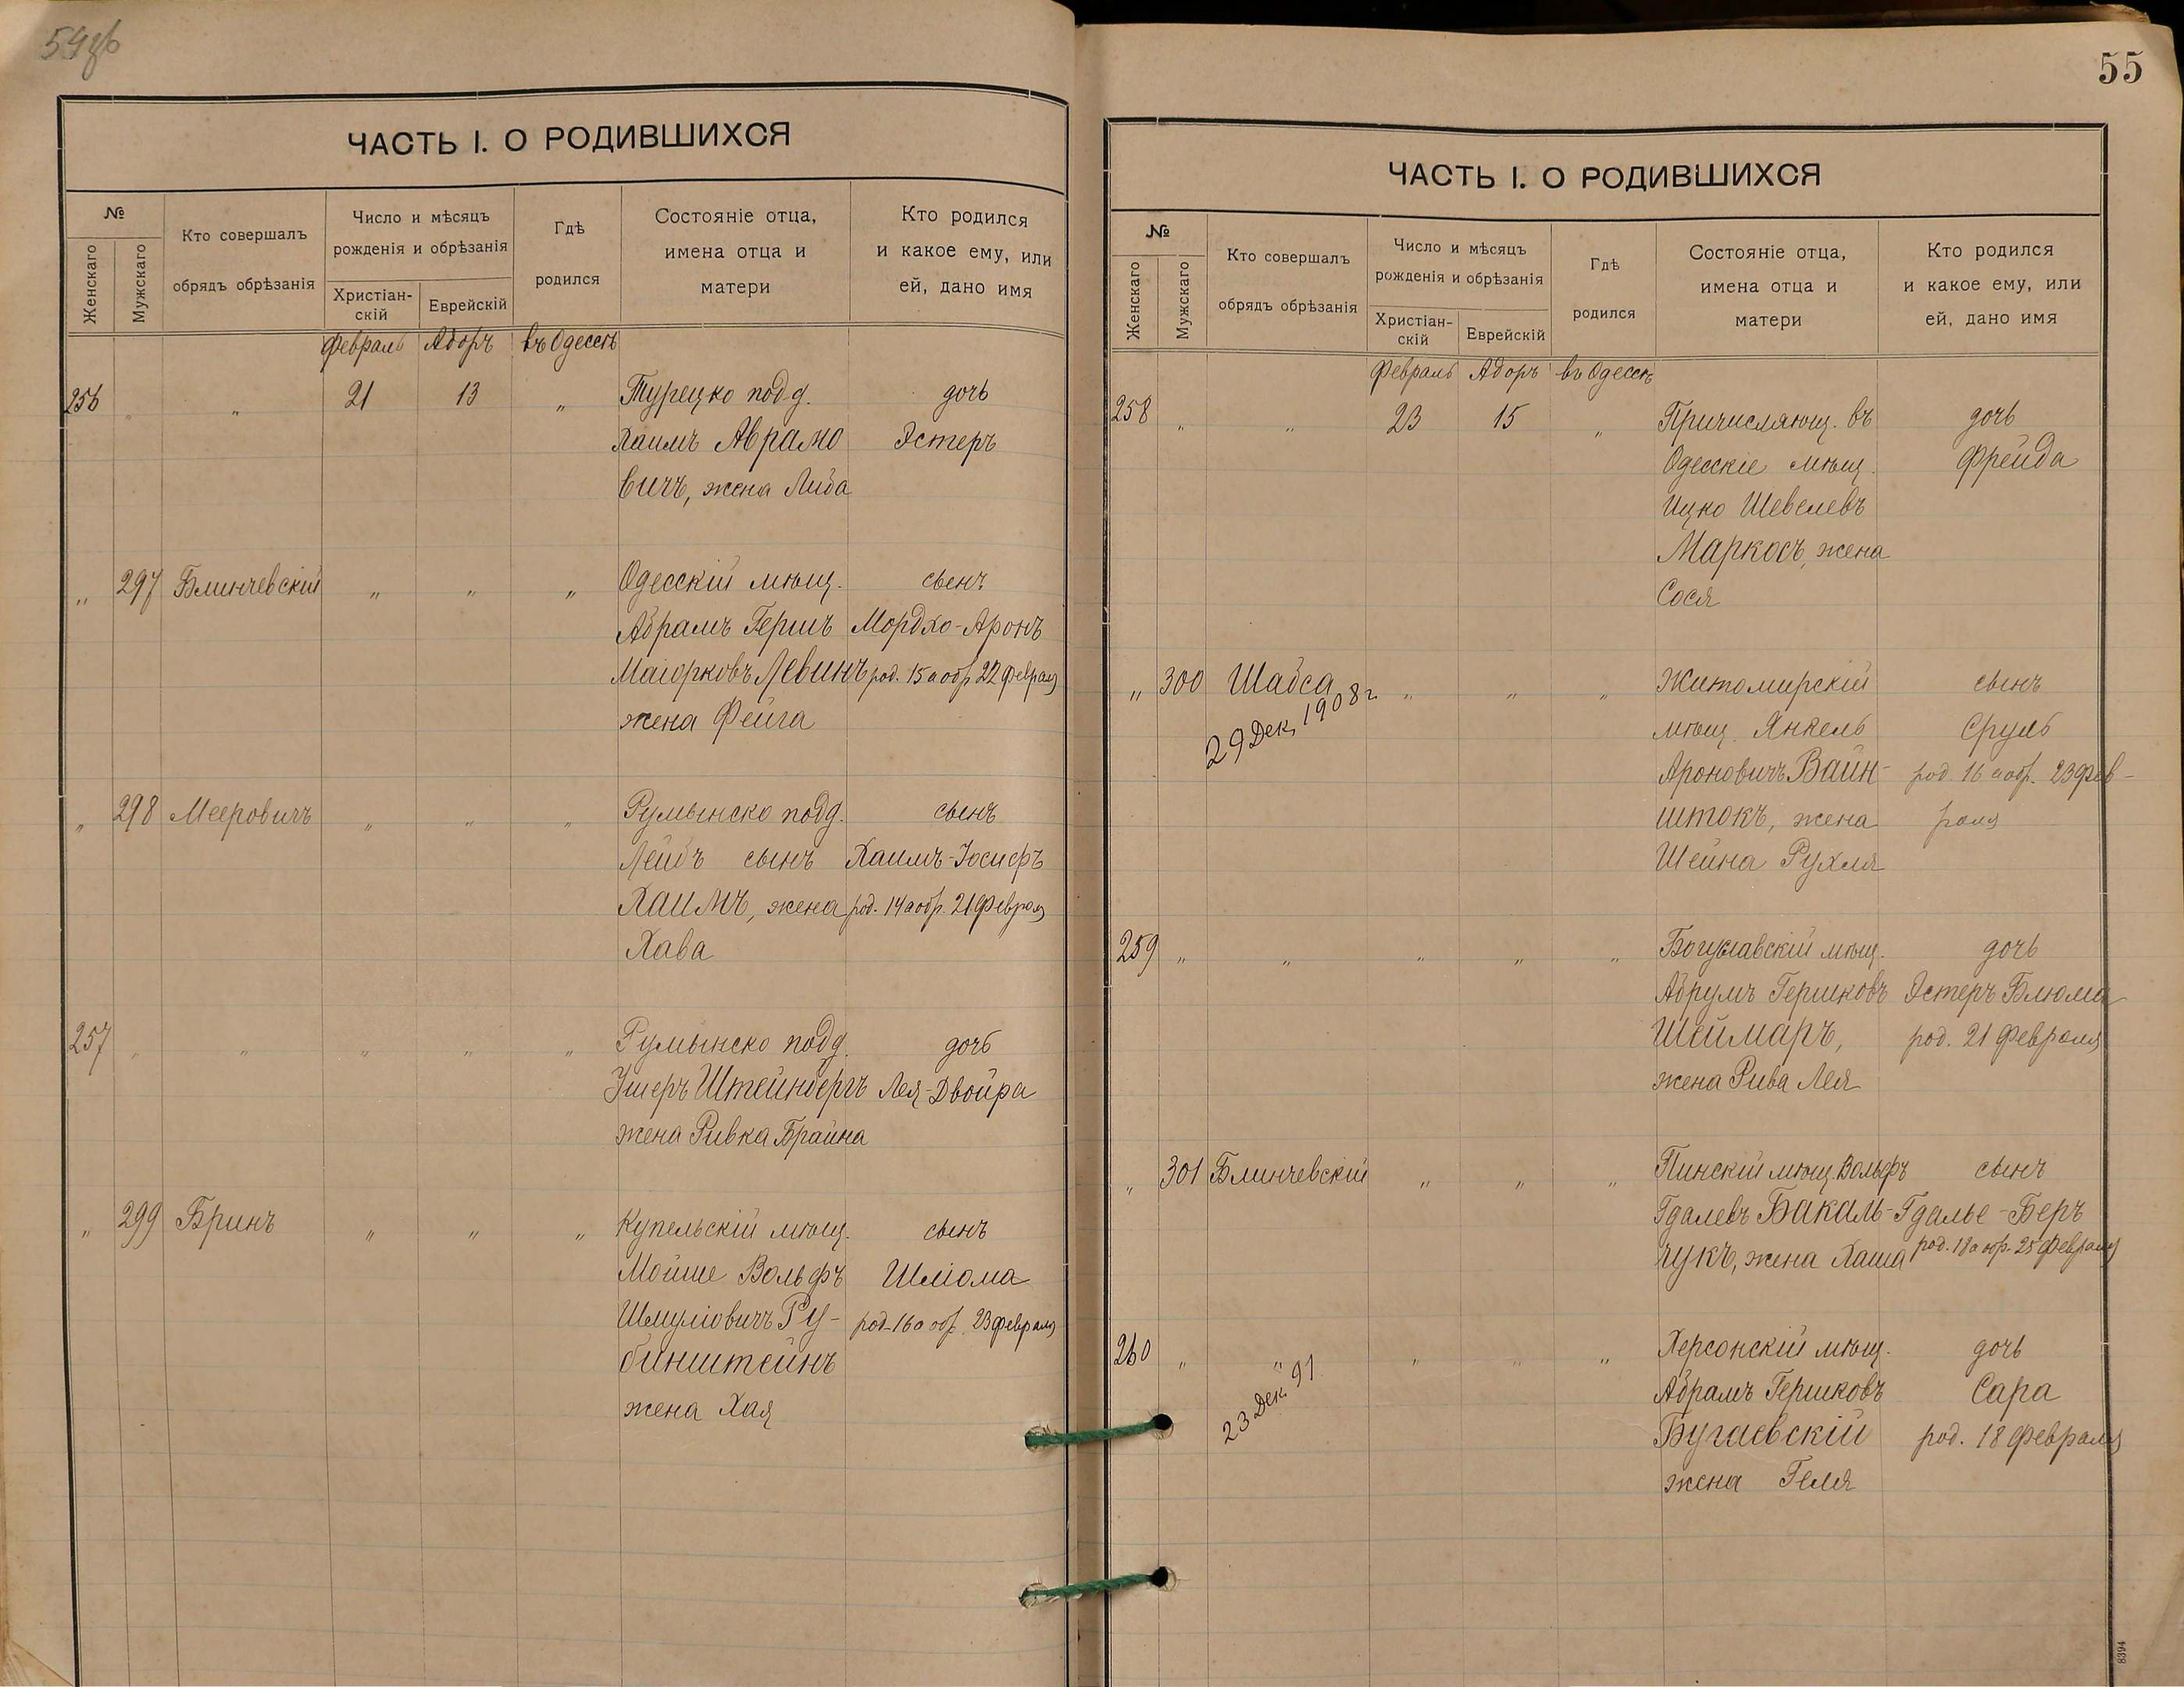 54об
ЧАСТЬ I. О РОДИВШИХСЯ
№
Женскаго
Мужскаго
Кто совершалъ
обрядъ обрѣзанія
Число и мѣсяцъ
рожденія и обрѣзанія
Христіан-
скій
Еврейскій
Гдѣ
родился
Состояніе отца,
имена отца и
матери
Кто родился
и какое ему, или
ей, дано имя
Февраль Адоръ въ Одессѣ
256 „ „ 21 13 „ Турецко подд. дочь
Хаимъ Аврамо Эстеръ
вичъ, жена Либа
„ 297 Блинчевскій „ „ „ Одесскій мѣщ. сынъ
Абрамъ Гершъ Мордхо-Аронъ
Маіорковъ Левинъ род. 15 а обр 22 февраля
жена Фейга
„ 298 Мееровичъ „ „ „ Румынско подд. сынъ
Лейбъ сынъ Хаимъ-Іосифъ
Хаимъ, жена род. 14 а обр. 21 февраля
Хава
257 „ „ „ „ „ Румынско подд. дочь
Ушеръ Штейнбергъ Лея-Двойра
жена Ривка Брайна
„ 299 Бринъ „ „ „ Купельскій мѣщ. сынъ
Мойше Вольфъ Шліома
Шмуліовичъ Ру- род. 16 а обр. 23 февраля
бинштейнъ
жена Хая
55
ЧАСТЬ I. О РОДИВШИХСЯ
№
Женскаго
Мужскаго
Кто совершалъ
обрядъ обрѣзанія
Число и мѣсяцъ
рожденія и обрѣзанія
Христіан-
скій
Еврейскій
Гдѣ
родился
Состояніе отца,
имена отца и
матери
Кто родился
и какое ему, или
ей, дано имя
Февраль Адоръ въ Одессѣ
258 „ „ 23 15 „ Причисляющ. въ дочь
Одесскіе мѣщ. Фрейда
Ицко Шевелевъ
Маркосъ, жена
Сося
„ 300 Шабса „ „ „ Житомирскій сынъ
29 Дек. 1908 г. мѣщ. Янкель Сруль
Ароновичъ Вайн- род. 16 а обр. 23 фев-
штокъ, жена раля
Шейна Рухля
259 „ „ „ „ „ Богуславскій мѣщ. дочь
Абрумъ Гершковъ Эстеръ Блюма
Шеймаръ, род. 21 февраля
жена Рива Лея
„ 301 Блинчевскій „ „ „ Пинскій мѣщ. Вольфъ сынъ
Гдалевъ Бакаль- Гдалье-Беръ
чукъ, жена Хаша род. 18 а обр. 25 февраля
260 „ „ „ „ „ Херсонскій мѣщ. дочь
23 Дек. 91 Абрамъ Гершковъ Сара
Бугаевскій род. 18 февраля
жена Геля
8394